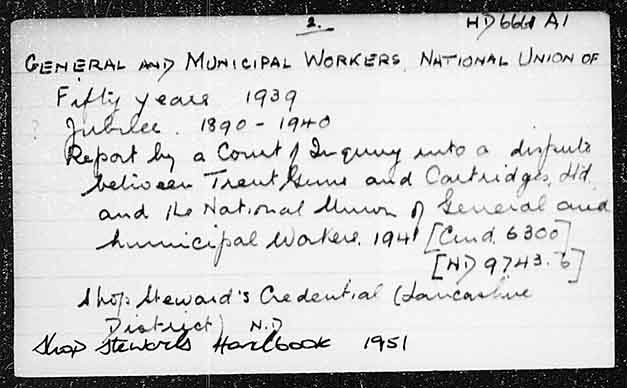 2.
HD6661 A1
GENERAL AND MUNICIPAL WORKERS, NATIONAL UNION OF
Fifty years 1939
Jubilee. 1890-1940
Report by a Court of Inquiry into a dispute
between Trent Guns and Cartridges, Ltd.
and the National Union of General and
Municipal Workers. 1941 [Cmd. 6300]
[HD 9743.B]
Shop Steward's Credential (Lancashire
District) N.D
Shop Stewards Handbook 1951